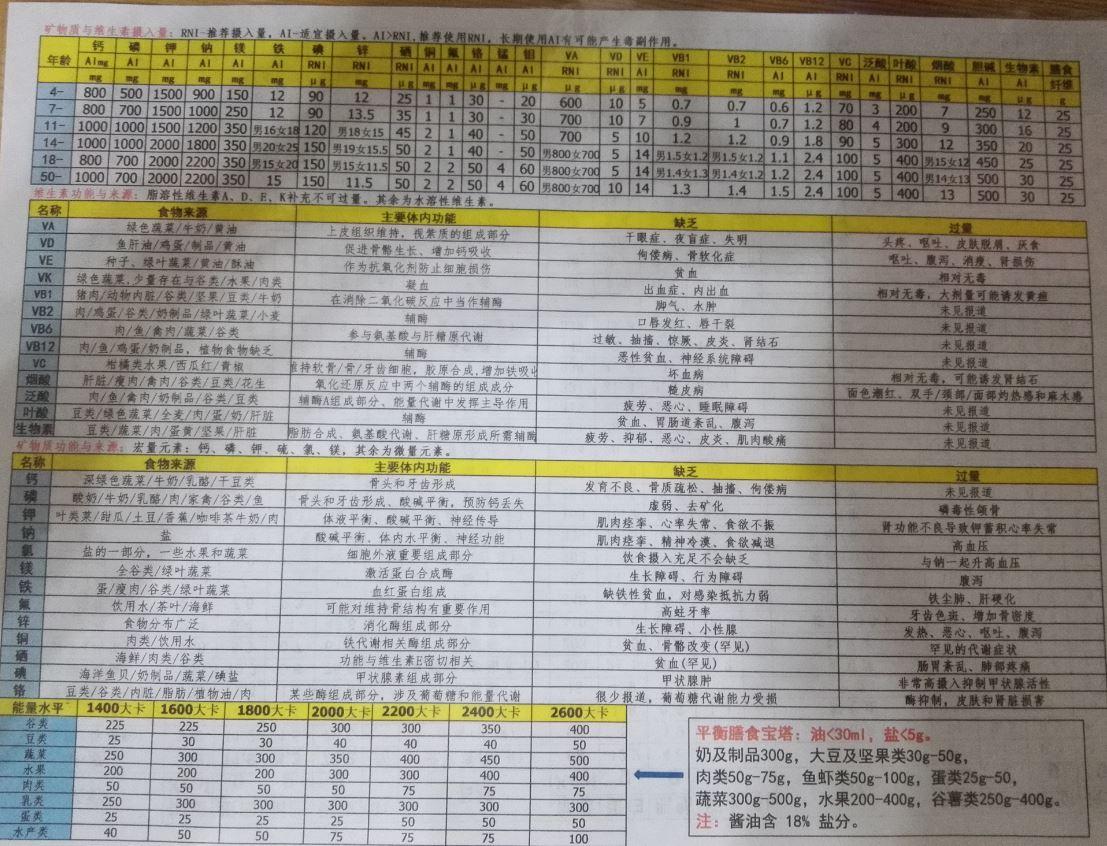 矿物质与维生素摄入量：RNI-推荐摄入量，AI-适宜摄入量。AI>RNI,推荐使用RNI，长期使用AI有可能产生毒副作用。
年龄 钙 磷 钾 钠 镁 铁 碘 锌 硒 铜 氟 铬 锰 钼 VA VD VE VB1 VB2 VB6 VB12 VC 泛酸 叶酸 烟酸 胆碱 生物素 膳食纤维
AImg AI AI AI AI AI RNI RNI RNI AI AI AI AI AI RNI RNI AI RNI RNI AI AI RNI AI RNI RNI AI AI
mg mg mg mg mg mg μg mg μg mg mg μg mg μg μg μg mg mg mg mg μg mg mg μg mg mg μg g
4- 800 500 1500 900 150 12 90 12 25 1 1 30 - 20 600 10 5 0.7 0.7 0.6 1.2 70 3 200 7 250 12 25
7- 800 700 1500 1000 250 12 90 13.5 35 1 1 30 - 30 700 10 7 0.9 1 0.7 1.2 80 4 200 9 300 16 25
11- 1000 1000 1500 1200 350 男16女18 120 男18女15 45 2 1 40 - 50 700 5 10 1.2 1.2 0.9 1.8 90 5 300 12 350 20 25
14- 1000 1000 2000 1800 350 男20女25 150 男19女15.5 50 2 1 40 - 50 男800女700 5 14 男1.5女1.2 男1.5女1.2 1.1 2.4 100 5 400 男15女12 450 25 25
18- 800 700 2000 2200 350 男15女20 150 男15女11.5 50 2 2 50 4 60 男800女700 5 14 男1.4女1.3 男1.4女1.2 1.2 2.4 100 5 400 男14女13 500 30 25
50- 1000 700 2000 2200 350 15 150 11.5 50 2 2 50 4 60 男800女700 10 14 1.3 1.4 1.5 2.4 100 5 400 13 500 30 25
维生素功能与来源：脂溶性维生素A、D、E、K补充不可过量。其余为水溶性维生素。
名称 食物来源 主要体内功能 缺乏 过量
VA 绿色蔬菜/牛奶/黄油 上皮组织维持，视紫质的组成部分 干眼症、夜盲症、失明 头疼、呕吐、皮肤脱屑、厌食
VD 鱼肝油/鸡蛋/制品/黄油 促进骨骼生长、增加钙吸收 佝偻病、骨软化症 呕吐、腹泻、消瘦、肾损伤
VE 种子、绿叶蔬菜/黄油/酥油 作为抗氧化剂防止细胞损伤 贫血 相对无毒
VK 绿色蔬菜,少量存在与谷类/水果/肉类 凝血 出血症、内出血 相对无毒，大剂量可能诱发黄疸
VB1 猪肉/动物内脏/谷类/坚果/豆类/牛奶 在消除二氧化碳反应中当作辅酶 脚气、水肿 未见报道
VB2 肉/鸡蛋/谷类/奶制品/绿叶蔬菜/小麦 辅酶 口唇发红、唇干裂 未见报道
VB6 肉/鱼/禽肉/蔬菜/谷类 参与氨基酸与肝糖原代谢 过敏、抽搐、惊厥、皮炎、肾结石 未见报道
VB12 肉/鱼/鸡蛋/奶制品，植物食物缺乏 辅酶 恶性贫血、神经系统障碍 未见报道
VC 柑橘类水果/西瓜红/青椒 维持软骨/骨/牙齿细胞，胶原合成,增加铁吸收 坏血病 相对无毒，可能诱发肾结石
烟酸 肝脏/瘦肉/禽肉/谷类/豆类/花生 氧化还原反应中两个辅酶的组成成分 糙皮病 面色潮红、双手/颈部/面部灼热感和麻木感
泛酸 肉/鱼/禽肉/奶制品/豆类/谷类 辅酶A组成部分、能量代谢中发挥主导作用 疲劳、恶心、睡眠障碍 未见报道
叶酸 豆类/绿色蔬菜/全麦/肉/蛋/奶/肝脏 辅酶 贫血、胃肠道紊乱、腹泻 未见报道
生物素 豆类/蔬菜/肉/蛋黄/坚果/肝脏 脂肪合成、氨基酸代谢、肝糖原形成所需辅酶 疲劳、抑郁、恶心、皮炎、肌肉酸痛 未见报道
矿物质功能与来源：宏量元素：钙、磷、钾、硫、氯、镁，其余为微量元素。
名称 食物来源 主要体内功能 缺乏 过量
钙 深绿色蔬菜/牛奶/乳酪/干豆类 骨头和牙齿形成 发育不良、骨质疏松、抽搐、佝偻病 未见报道
磷 酸奶/牛奶/乳酪/肉/家禽/谷类/鱼 骨头和牙齿形成、酸碱平衡，预防钙丢失 虚弱、去矿化 磷毒性颌骨
钾 叶类菜/甜瓜/土豆/香蕉/咖啡茶牛奶/肉 体液平衡、酸碱平衡、神经传导 肌肉痉挛、心率失常、食欲不振 肾功能不良导致钾蓄积心率失常
钠 盐 酸碱平衡、体内水平衡、神经功能 肌肉痉挛、精神冷漠、食欲减退 高血压
氯 盐的一部分，一些水果和蔬菜 细胞外液重要组成部分 饮食摄入充足不会缺乏 与钠一起升高血压
镁 全谷类/绿叶蔬菜 激活蛋白合成酶 生长障碍、行为障碍 腹泻
铁 蛋/瘦肉/谷类/绿叶蔬菜 血红蛋白组成 缺铁性贫血，对感染抵抗力弱 铁尘肺、肝硬化
氟 饮用水/茶叶/海鲜 可能对维持骨结构有重要作用 高蛀牙率 牙齿色斑、增加骨密度
锌 食物分布广泛 消化酶组成部分 生长障碍、小性腺 发热、恶心、呕吐、腹泻
铜 肉类/饮用水 铁代谢相关酶组成部分 贫血、骨骼改变(罕见) 罕见的代谢症状
硒 海鲜/肉类/谷类 功能与维生素E密切相关 贫血(罕见) 肠胃紊乱、肺部疼痛
碘 海洋鱼贝/奶制品/蔬菜/碘盐 甲状腺素组成部分 甲状腺肿 非常高摄入抑制甲状腺活性
铬 豆类/谷类/内脏/脂肪/植物油/肉 某些酶组成部分，涉及葡萄糖和能量代谢 很少报道，葡萄糖代谢能力受损 酶抑制，皮肤和肾脏损害
能量水平 1400大卡 1600大卡 1800大卡 2000大卡 2200大卡 2400大卡 2600大卡
谷类 225 225 250 300 300 350 400
豆类 25 30 30 40 40 40 50
蔬菜 250 300 300 350 400 450 500
水果 200 200 200 300 300 400 400
肉类 50 50 50 50 75 75 75
乳类 250 300 300 300 300 300 300
蛋类 25 25 25 25 50 50 50
水产类 40 50 50 75 75 75 100
平衡膳食宝塔：油<30ml，盐<5g。
奶及制品300g，大豆及坚果类30g-50g，
肉类50g-75g，鱼虾类50g-100g，蛋类25g-50，
蔬菜300g-500g，水果200-400g，谷薯类250g-400g。
注：酱油含 18% 盐分。